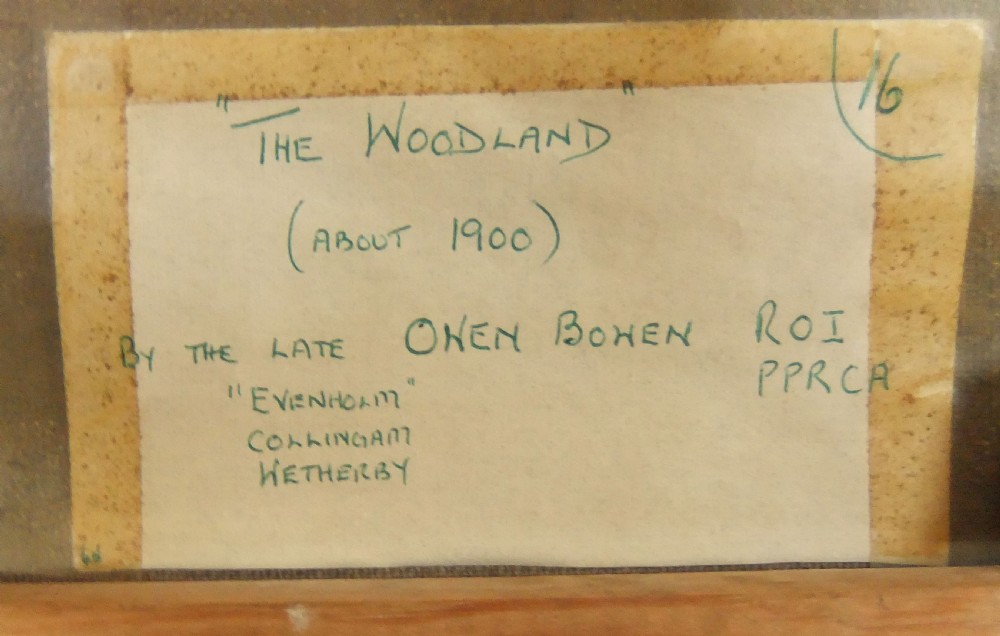 16
"THE WOODLAND"
(ABOUT 1900)
BY THE LATE OWEN BOWEN ROI
PPRCA
"EVENHOLM"
COLLINGAM
WETHERBY